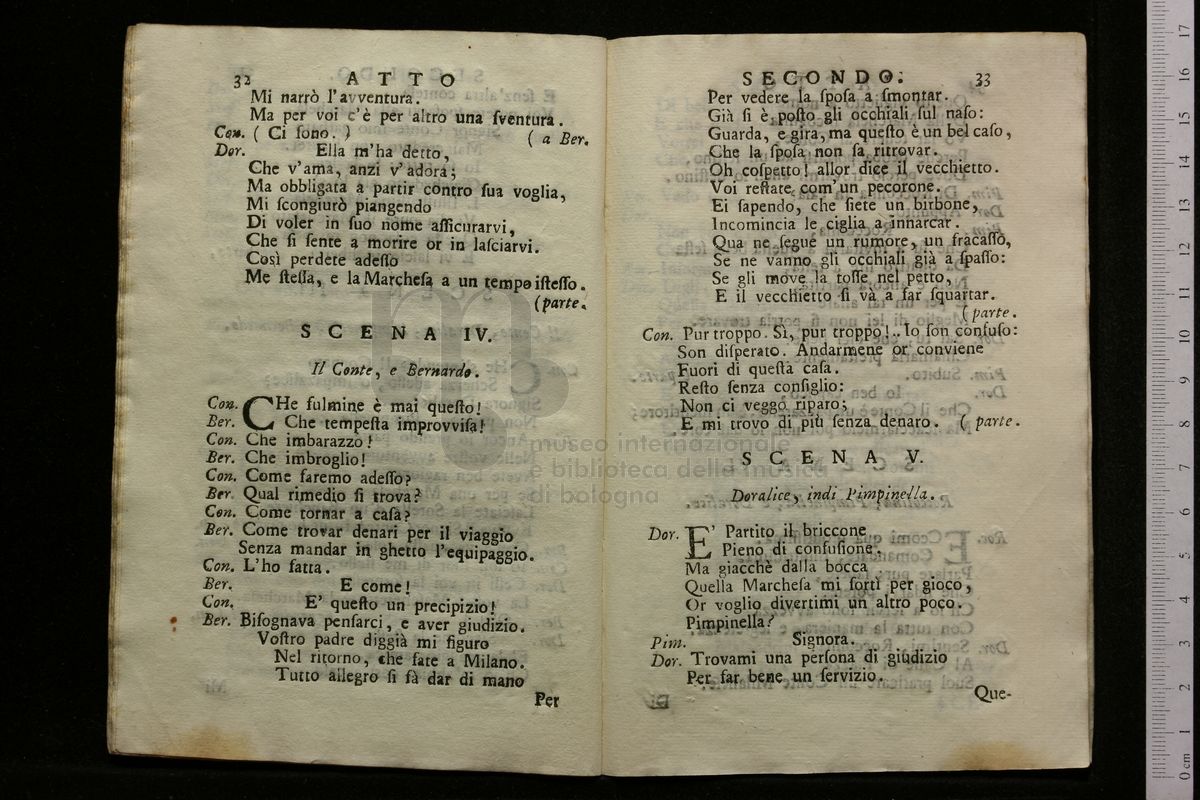 32 ATTO
Mi narrò l'avventura.
Ma per voi c'è per altro una ſventura.
Con. ( Ci ſono. ) ( a Ber.
Dor. Ella m'ha detto,
Che v'ama, anzi v'adora;
Ma obbligata a partir contro ſua voglia,
Mi ſcongiurò piangendo
Di voler in ſuo nome aſſicurarvi,
Che ſi ſente a morire or in laſciarvi.
Così perdete adeſſo
Me ſteſſa, e la Marcheſa a un tempo iſteſſo.
(parte.
SCENA IV.
Il Conte, e Bernardo.
Con. CHe fulmine è mai queſto!
Ber. Che tempeſta improvviſa!
Con. Che imbarazzo!
Ber. Che imbroglio!
Con. Come faremo adeſſo?
Ber. Qual rimedio ſi trova?
Con. Come tornar a caſa?
Ber. Come trovar denari per il viaggio
Senza mandar in ghetto l'equipaggio.
Con. L'ho fatta.
Ber. E come!
Con. E' queſto un precipizio!
Ber. Biſognava penſarci, e aver giudizio.
Voſtro padre diggià mi figuro
Nel ritorno, che fate a Milano.
Tutto allegro ſi fà dar di mano
Per
SECONDO. 33
Per vedere la ſpoſa a ſmontar.
Già ſi è poſto gli occhiali ſul naſo:
Guarda, e gira, ma queſto è un bel caſo,
Che la ſpoſa non ſa ritrovar.
Oh coſpetto! allor dice il vecchietto.
Voi reſtate com'un pecorone.
Ei ſapendo, che ſiete un birbone,
Incomincia le ciglia a innarcar.
Qua ne ſegue un rumore, un fracaſſo,
Se ne vanno gli occhiali già a ſpaſſo:
Se gli move la toſſe nel petto,
E il vecchietto ſi và a far ſquartar.
(parte.
Con. Pur troppo. Sì, pur troppo!.. Io ſon confuſo:
Son diſperato. Andarmene or conviene
Fuori di queſta caſa.
Reſto ſenza conſiglio:
Non ci veggo riparo;
E mi trovo di più ſenza denaro. ( parte.
SCENA V.
Doralice, indi Pimpinella.
Dor. E' Partito il briccone
Pieno di confuſione.
Ma giacchè dalla bocca
Quella Marcheſa mi ſortì per gioco,
Or voglio divertimi un altro poco.
Pimpinella?
Pim. Signora.
Dor. Trovami una perſona di giudizio
Per far bene un ſervizio.
Que-
museo internazionale
e biblioteca della musica
di bologna
0 cm 1 2 3 4 5 6 7 8 9 10 11 12 13 14 15 16 17